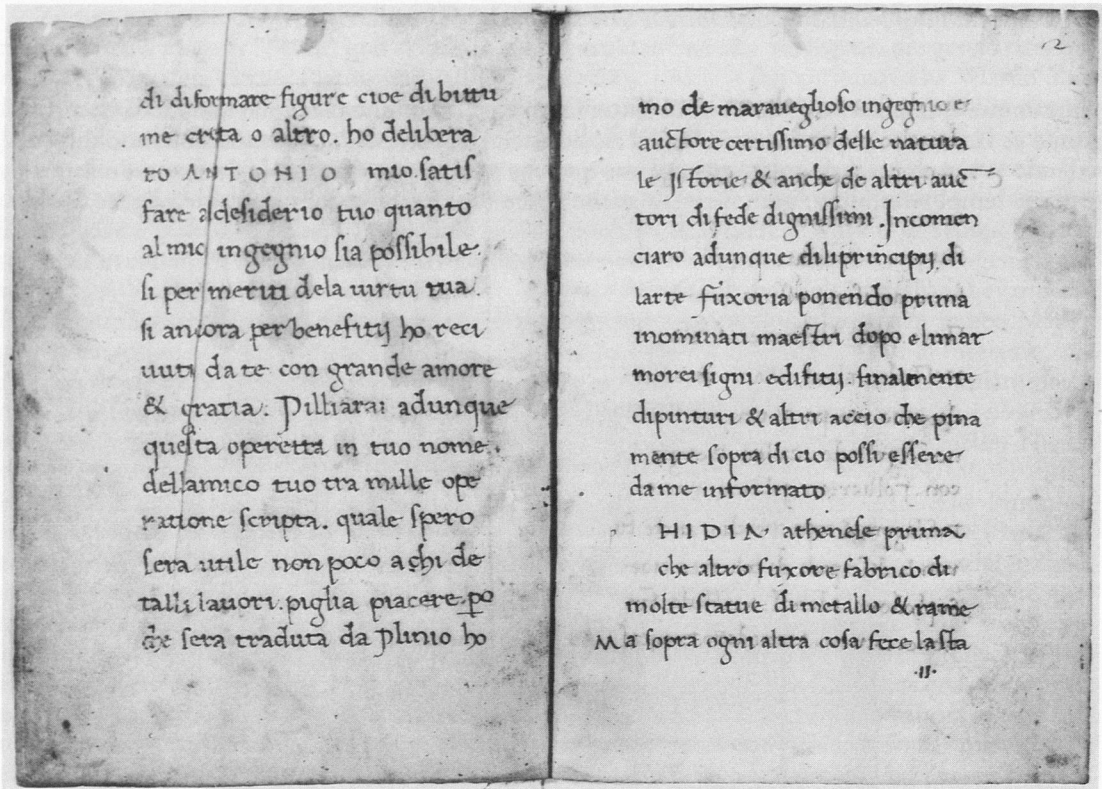 di di formare figure cioe di bittu
me creta o altro. ho delibera
to ANTONIO mio satis
fare al desiderio tuo quanto
al mio ingegnio sia possibile
si per meriti dela uirtu tua.
si ancora per benefitij ho reci
uuti da te con grande amore
& gratia. Pilliarai adunque
questa operetta in tuo nome
dell amico tuo tra mille ope
ratione scripta. quale spero
sera utile non poco a chi de
talli lauori piglia piacere po
che sera traduta da Plinio ho
2
mo de maraueglioso ingegnio e
auctore certissimo delle natura
le Istorie & anche de altri auc
tori di fede dignissimi. Incomen
ciaro adunque di li principij di
larte fuxoria ponendo prima
nominati maestri dopo e li mar
morei signi edifitij. finalmente
dipinturi & altri accio che pina
mente sopra di cio possi essere
da me informato
HIDIA atheniese prima
che altro fuxore fabrico di
molte statue di metallo & rame
Ma sopra ogni altra cosa fece la sta
.II.